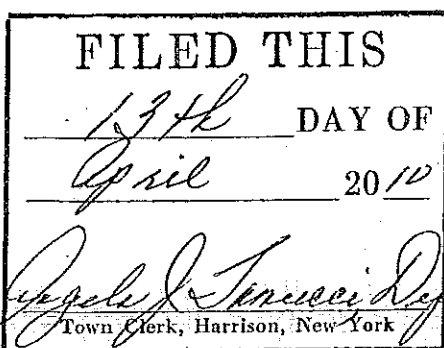 FILED THIS
13th DAY OF
April 2010
Angela J. Ianucci Dy
Town Clerk, Harrison, New York